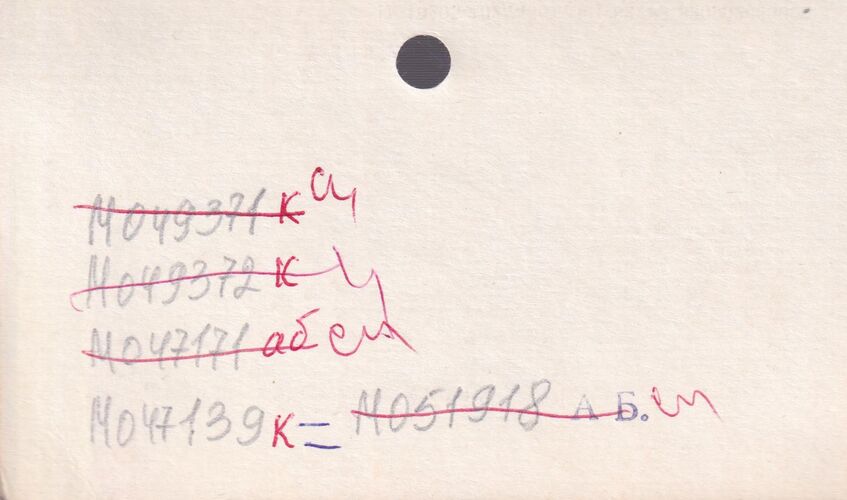 М049371 к
М049372 к
М047171 аб
М047139 к = М051918 А Б.